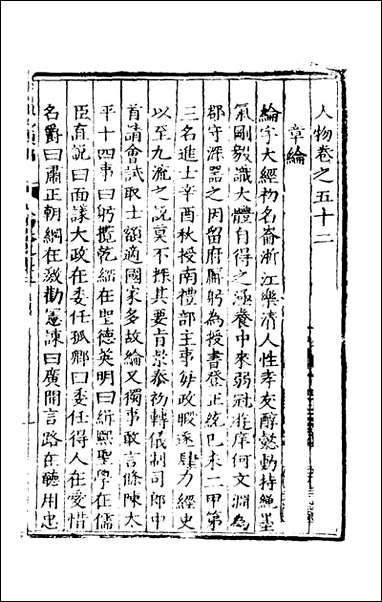 人物卷之五十二
章綸
綸字大經初名崙浙江樂清人性孝友醇懿動持繩墨
氣剛毅識大體自得之涵養中來弱冠遊庠何文淵為
郡守深器之因留府廨躬為授書登正統己未二甲第
三名進士辛酉秋授南禮部主事於政暇遂肆力經史
以至九流之說莫不採其要肯景泰初轉儀制司郎中
首請會試取士額適國家多故綸又獨事敢言條陳太
平十四事曰躬攬乾綱在聖德英明曰緝熙聖學在儒
臣直說曰面議大政在委任孤卿曰委任得人在愛惜
名爵曰肅正朝綱在激勸憲諫曰廣開言路在聽用忠